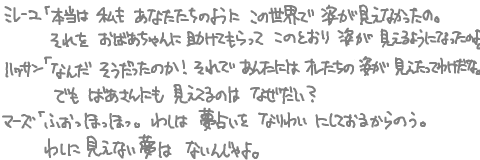 ミレーユ「本当は 私も あなたたちのように この世界で 姿が見えなかったの。
それを おばあちゃんに 助けてもらって このとおり 姿が 見えるようになったのよ。
ハッサン「なんだ そうだったのか！それで あんたには オレたちの 姿が 見えたってわけだな。
でも ばあさんにも 見えてるのは なぜだい？
マーズ「ふぉっほっほっ。わしは 夢占いを なりわい にしておるからのう。
わしに 見えない 夢は ないんじゃよ。